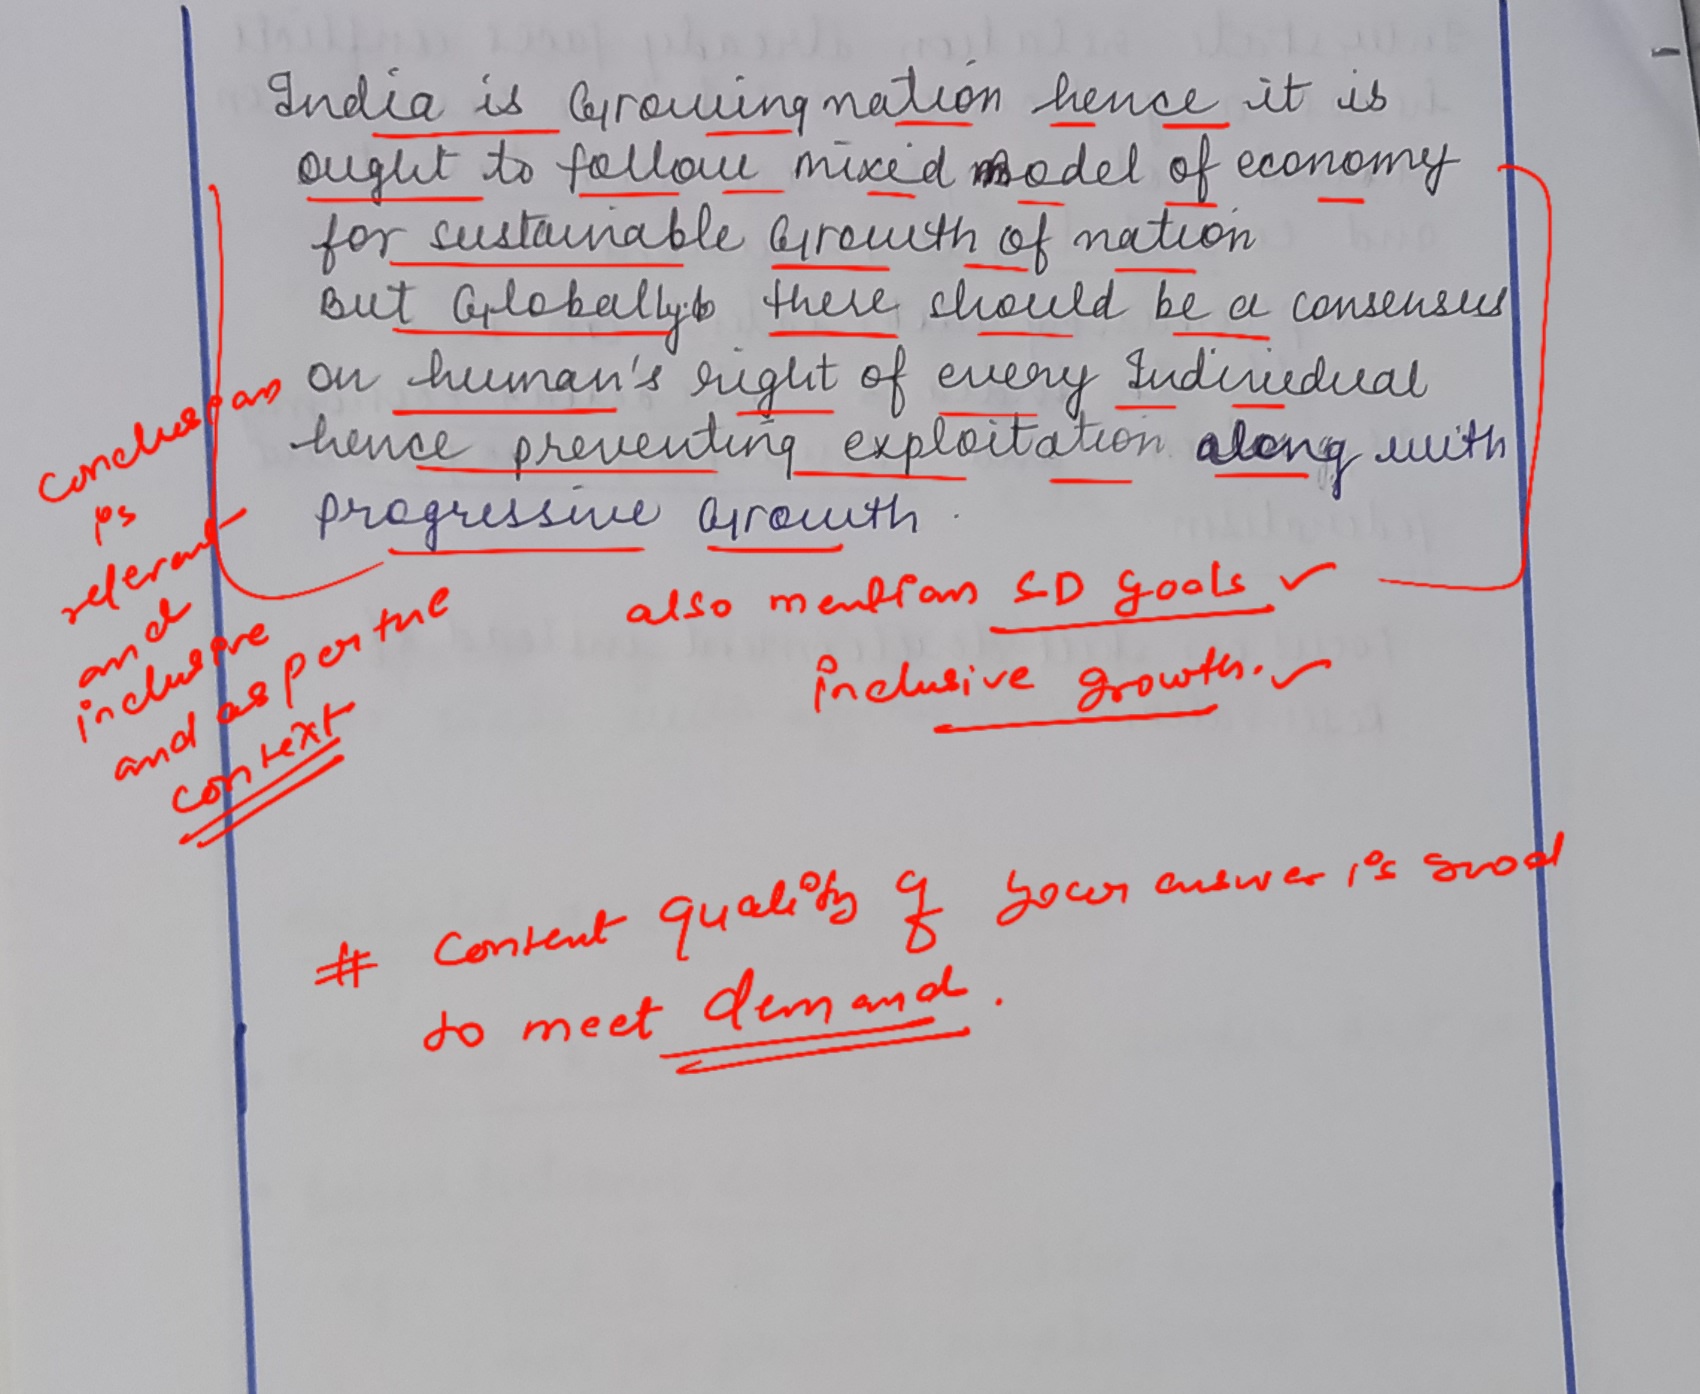 India is Growing nation hence it is
ought to follow mixed model of economy
for sustainable Growth of nation
But Globally there should be a consensus
on human's right of every Individual
hence preventing exploitation along with
progressive Growth.
also mention SD goals ✓
inclusive growth. ✓
Conclusion
is
relevant
and
inclusive
and as per the
context
# Content quality of your answer is good
to meet demand.